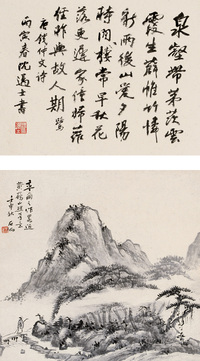 泉壑帶茅茨雲
霞生薜帷竹憐
新雨後山愛夕陽
時閒棲常早秋花
落更遲家僮掃蘿
徑昨與故人期 鷺
唐錢仲文詩
丙寅春沈邁士書